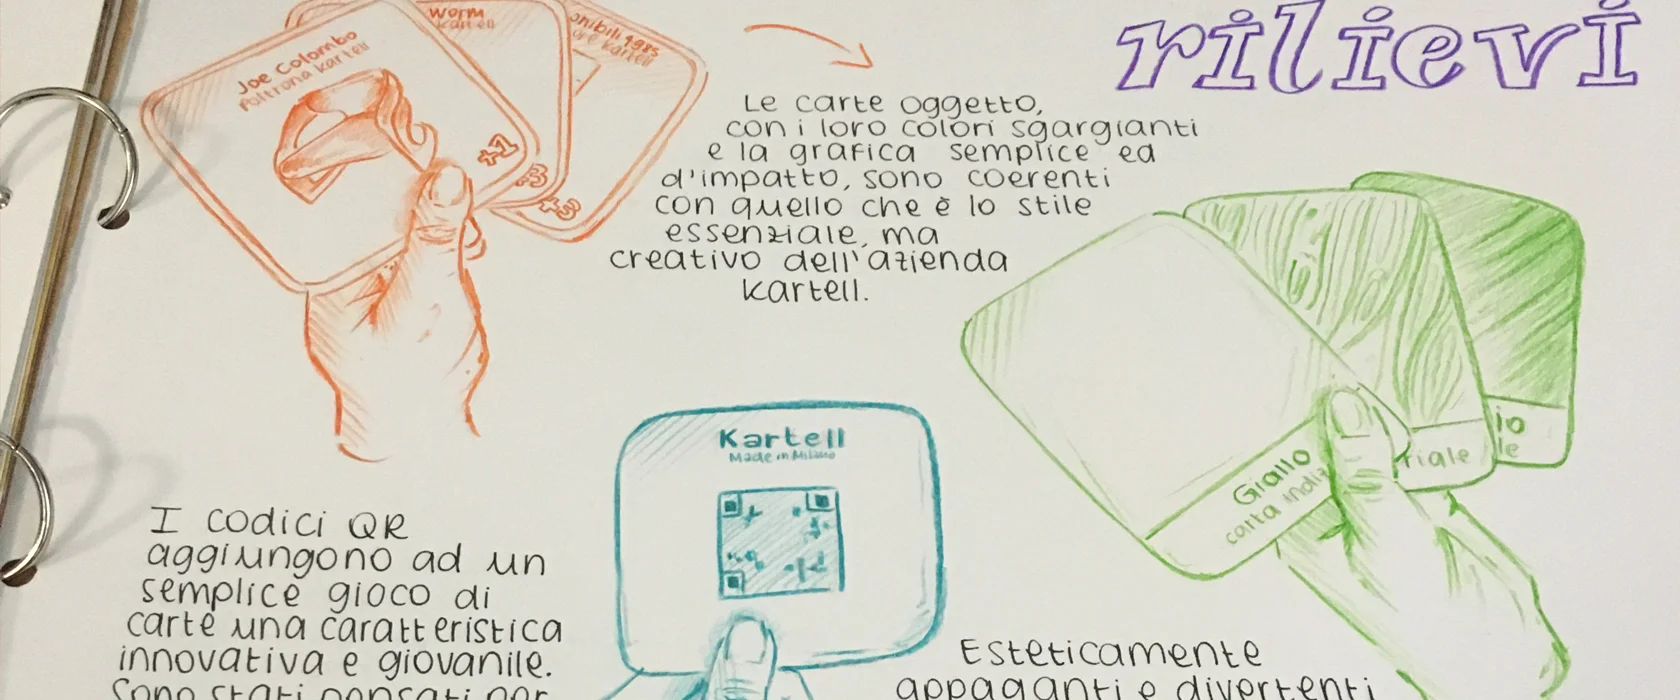 rilievi
Joe Colombo
Poltrona Kartell
+1
worm
kartell
+3
onibili 1985
kartell
+3
Le carte oggetto,
con i loro colori sgargianti
e la grafica semplice ed
d'impatto, sono coerenti
con quello che è lo stile
essenziale, ma
creativo dell'azienda
Kartell.
Giallo
carta indi
riale
io
le
Kartell
Made in Milano
I codici QR
aggiungono ad un
semplice gioco di
carte una caratteristica
innovativa e giovanile.
Sono stati pensati per
Esteticamente
appaganti e divertenti